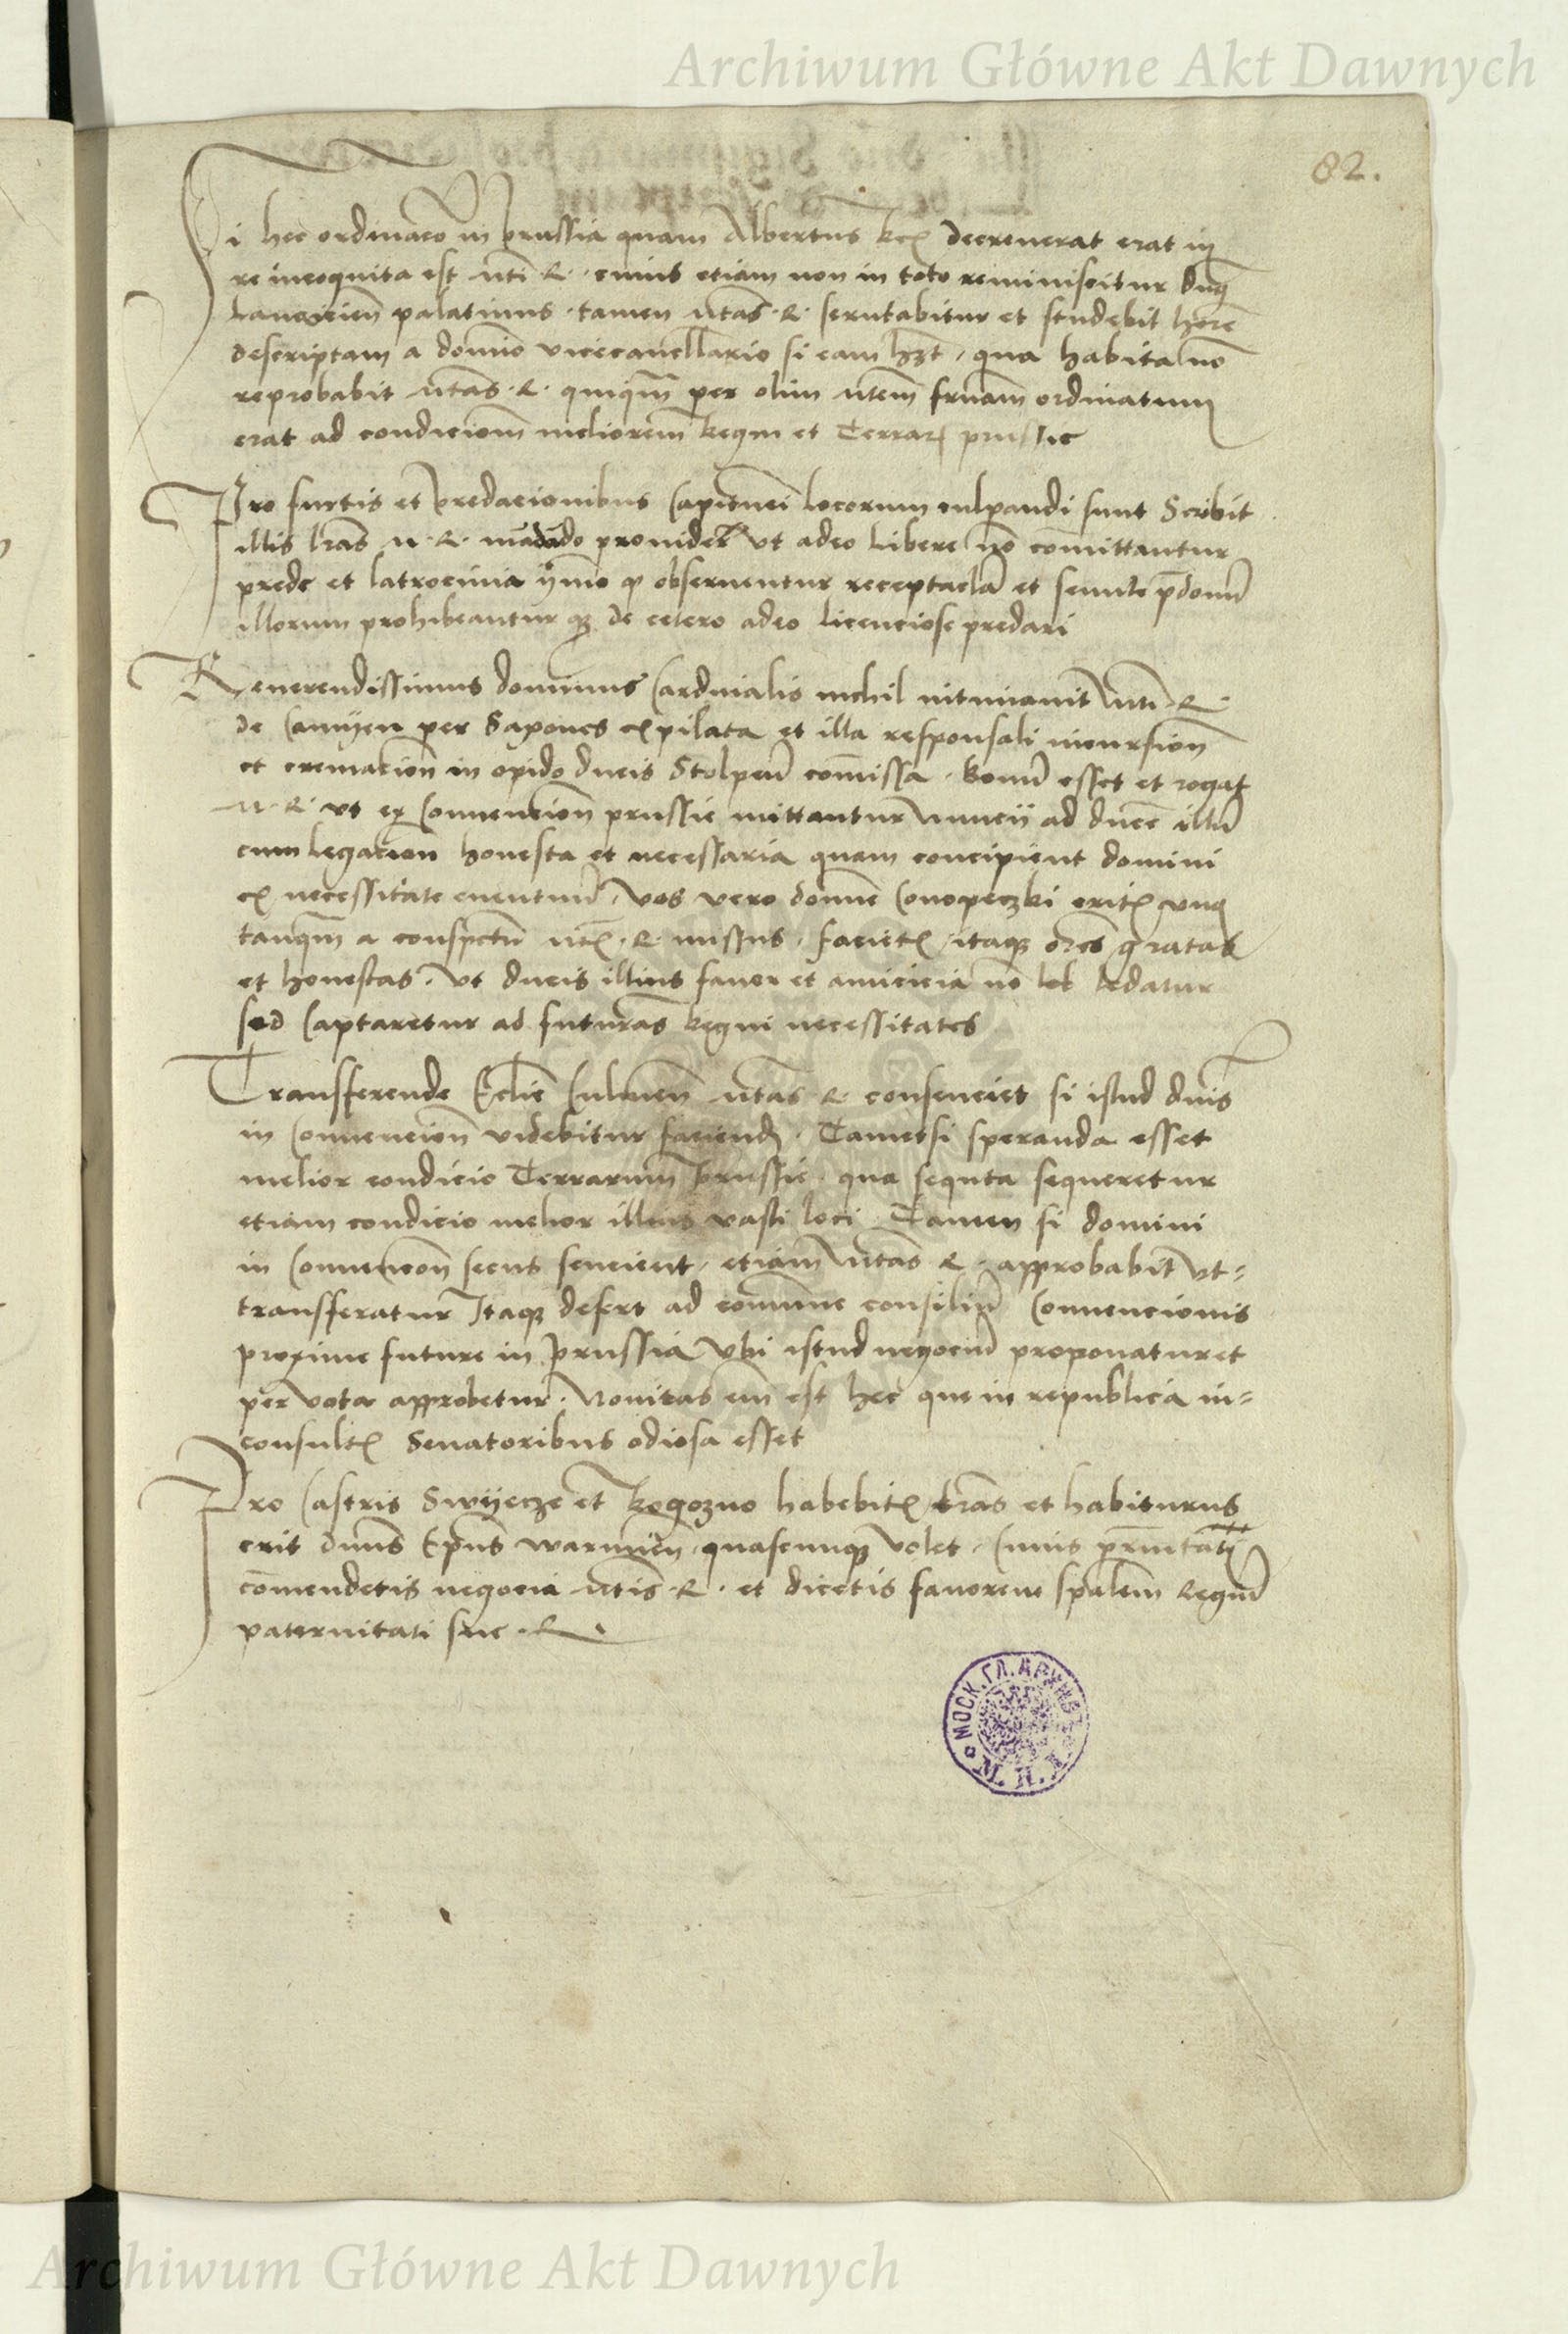 Archiwum Główne Akt Dawnych
82.
Si hec ordinacio in prussia quam Albertus Rex decreverat erat in
re incognita est Mti R. cuius etiam non in toto reminiscitur dnus
Lancicien palatinus tamen Mtas R. scrutabitur et studebit habere
descriptam a domino vicecancellario si eam habet, qua habita non
reprobabit Mtas R. quicquam per olim Mtem fraternam ordinatum
erat ad condicionem meliorem Regni et Terrarum prussie
Pro furtis et predacionibus Capitanei locorum culpandi sunt Scribit
illis lras M. R. mandando provideri ut adeo libere non committantur
prede et latrocinia ymmo quod observentur receptacla et semite predonum
illorum prohibeantur que de cetero adeo licenciose predari
Reverendissimus dominus Cardinalis nichil intimavit Mti R.
de Camyen per Saxones expilata et illa responsali incursione
et cremacione in opido ducis Stolpensi commissa. Bonum esset et rogat
M. R. ut ex Convencione prussie mittantur Nuncii ad ducem illum
cum legacione honesta et necessaria quam concipient domini
ex necessitate eventuum, vos vero domine Conopeczki eritis unus
tanquam a conspectu Mtis R. missus, facietis itaque omnes gratas
et honestas, ut ducis illius favor et amicicia non ledatur
sed Captaretur ad futuras Regni necessitates
Transferende Ecclie Culmen Mtas R. consenciet si istud dnis
in Convencione videbitur faciendum. Tametsi speranda esset
melior condicio Terrarum prussie, qua sequta sequeretur
etiam condicio melior illius vasti loci. Tamen si domini
in Convencione secus sencient, etiam Mtas R. approbabit ut=
transferatur Itaque defert ad commune consilium Convencionis
proxime future in prussia Ubi istud negocium proponatur et
per vota approbetur. Novitas enim est hec que in republica in=
consultis Senatoribus odiosa esset
Pro Castris Swyecze et Rogozno habebitis lras et habiturus
erit dnus Epus warmien, quascunque volet, Cuius paternitati
commendetis negocia Mtis R. et dicetis favorem specialem Regium
paternitati sue R.
МОСК. ГЛ. АРХИВ
М. И. Д.
Archiwum Główne Akt Dawnych